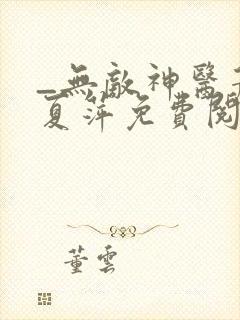 _無敵神醫
夏萍免費閱
董雲